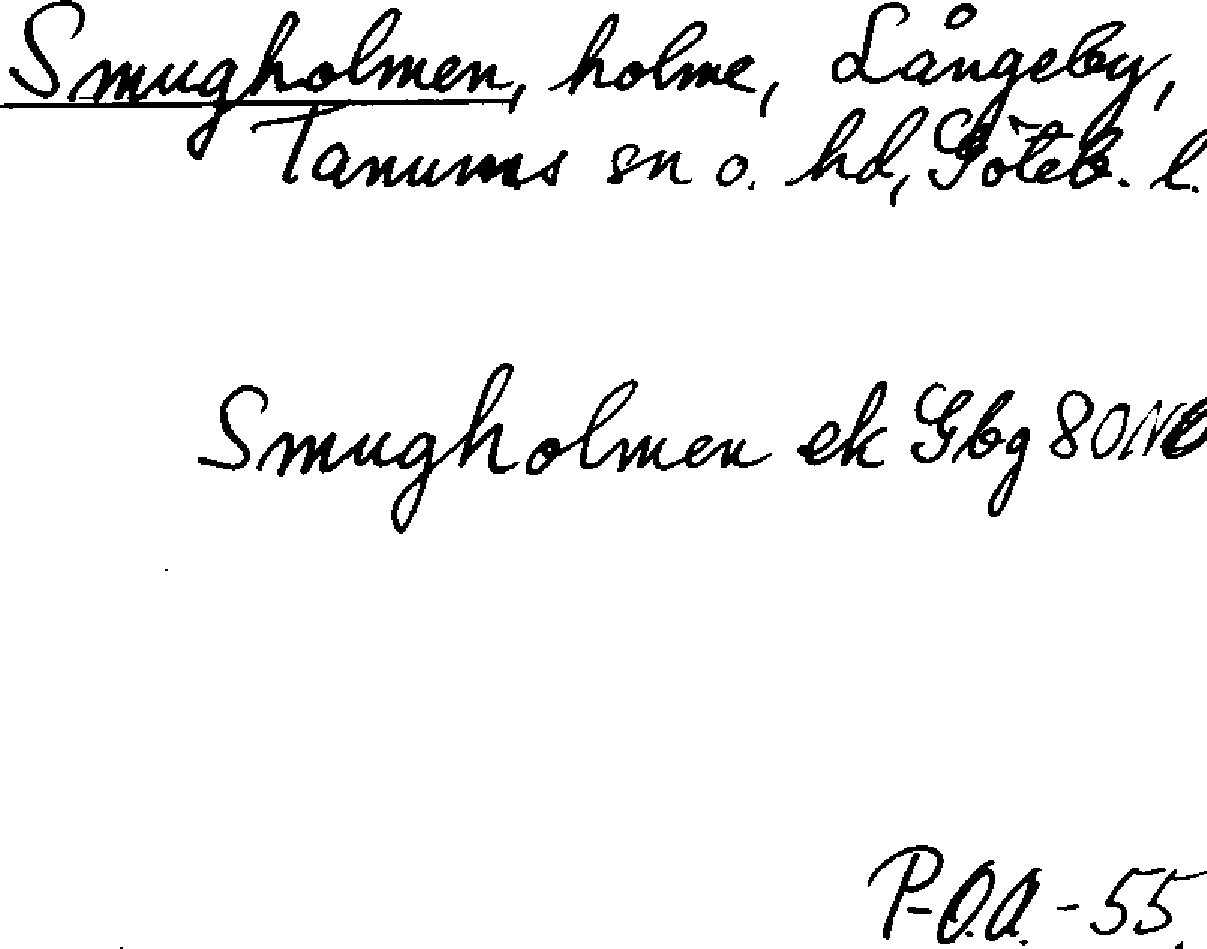 Smugholmen, holme, Långeby,
Tanums sn o. hd, Göteb. l.
Smugholmen ek Gbg 80 NO
P-O.A. -55.